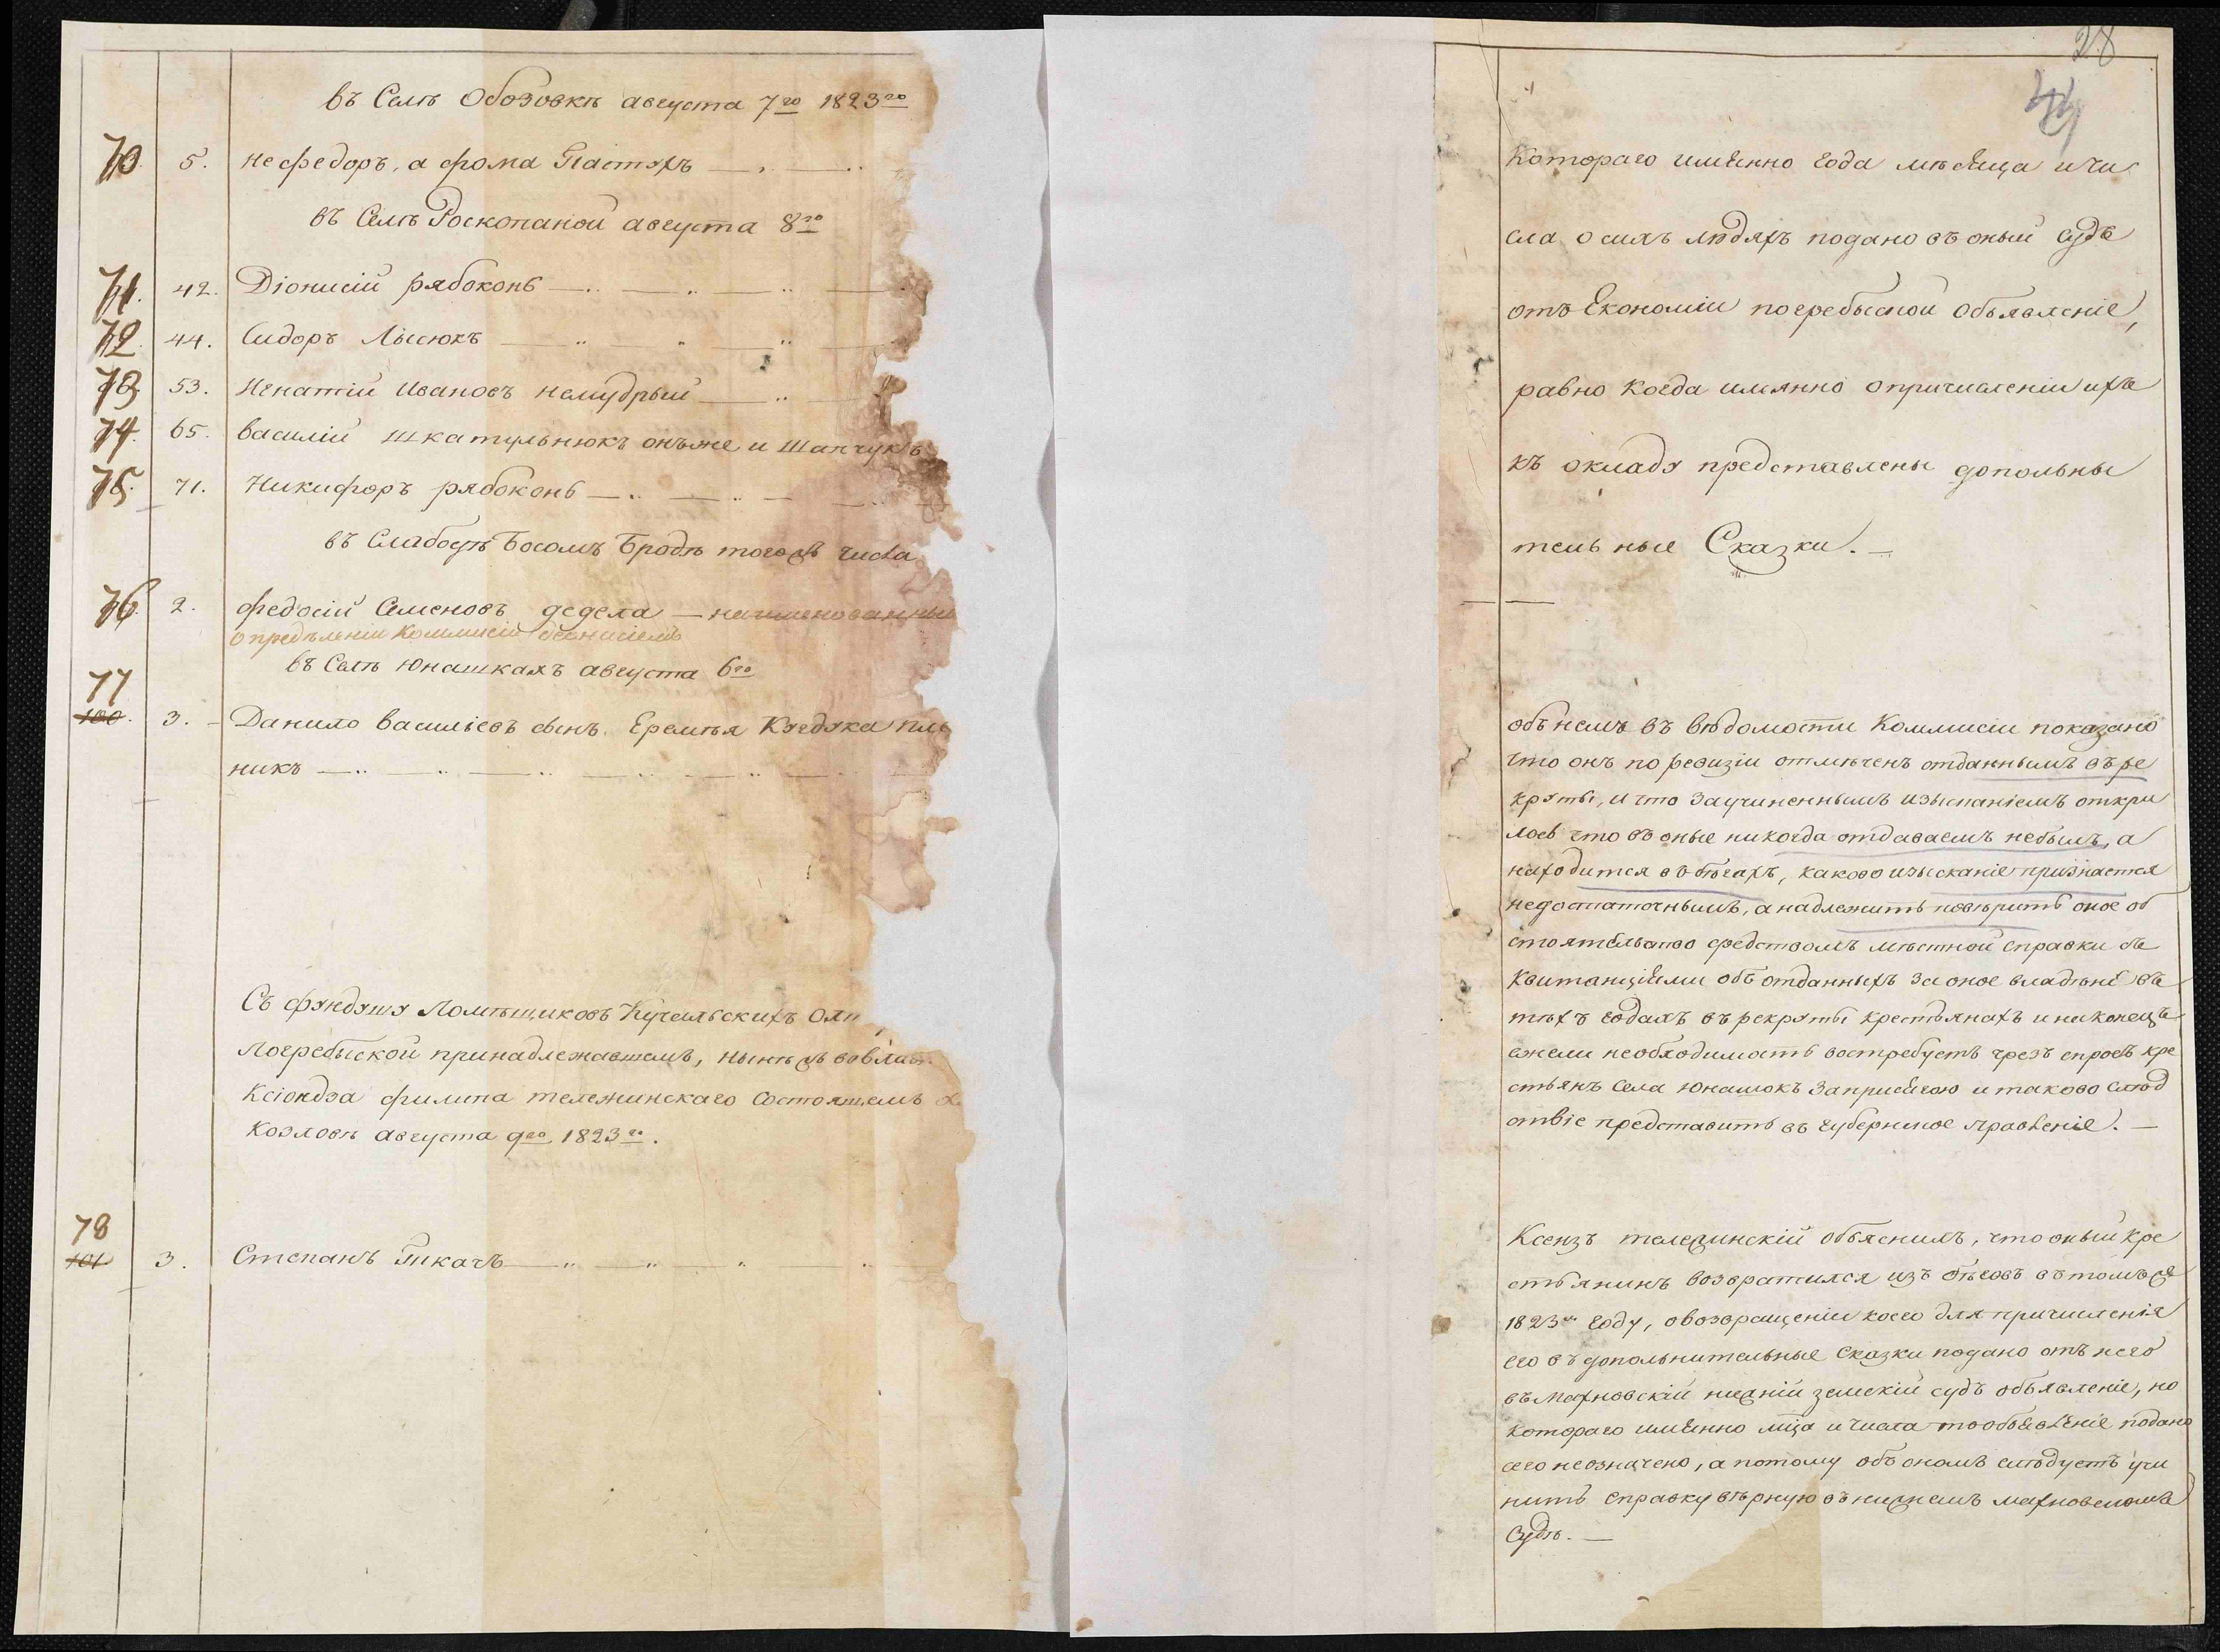 въ Селѣ Обозовкѣ августа 7го 1823го
70. 5. не федоръ, а фома Пастухъ
въ Селѣ Роскопаной августа 8го
71. 42. Діонисій рябоконь
72. 44. Сидоръ Лысюкъ
73. 53. Игнатій Ивановъ немудрый
74. 65. василій шкатульнюкъ онъже и Шапчукъ
75. 71. Никифоръ рябоконь
въ Слабодѣ Босомъ Бродѣ тогожъ числа
76. 2. федосій Семеновъ дедела
опредѣленіи Коммисіи
въ Селѣ Юнашкахъ августа 6го
77
100. 3. Данило васильевъ сынъ Еремѣя Кучдяка пле
никъ
Съ фундуша Помѣщиковъ
Погребыской принадлежавшемъ, нынѣжъ во влад
Ксіондза филипа тележинскаго Состоящемъ
Козловѣ августа 9го 1823го.
78
101 3. Степанъ Ткачъ
28
котораго именно года мѣсяца и чи
сла о сихъ людяхъ подано въ оный судъ
отъ Економіи погребыской объявленіе,
равно когда имянно о причисленіи ихъ
къ окладу представлены дополни
тельные Сказки. —
объ немъ въ вѣдомости Коммисіи показано
что онъ по ревизіи отмѣченъ отданнымъ въ ре
круты, и что за учиненнымъ изысканіемъ откри
лось что въ оные никогда отдаваемъ небылъ, а
находится въ бѣгахъ, каково изысканіе признается
недостаточнымъ, а надлежитъ повѣрить оное об
стоятельство средствомъ мѣстной справки съ
квитанціями объ отданныхъ за оное владѣніе въ
тѣхъ годахъ въ рекруты крестьянахъ и наконецъ
ежели необходимость востребуетъ чрезъ спросъ кре
стьянъ села Юнашокъ за присягою и таково слѣд
ствіе представить въ губернское правленіе. —
Ксензъ тележинскій объяснилъ, что оный кре
стьянинъ возвратился изъ бѣговъ въ томъ же
1823м году, о возвращеніи коего для причисленія
его въ дополнительные сказки подано отъ него
въ Махновскій нижній земскій судъ объявленіе, но
котораго именно мца и числа то объявленіе подано
сего неозначено, а потому объ ономъ слѣдуетъ учи
нить справку вѣрную въ нижнемъ махновскомъ
Судѣ. —